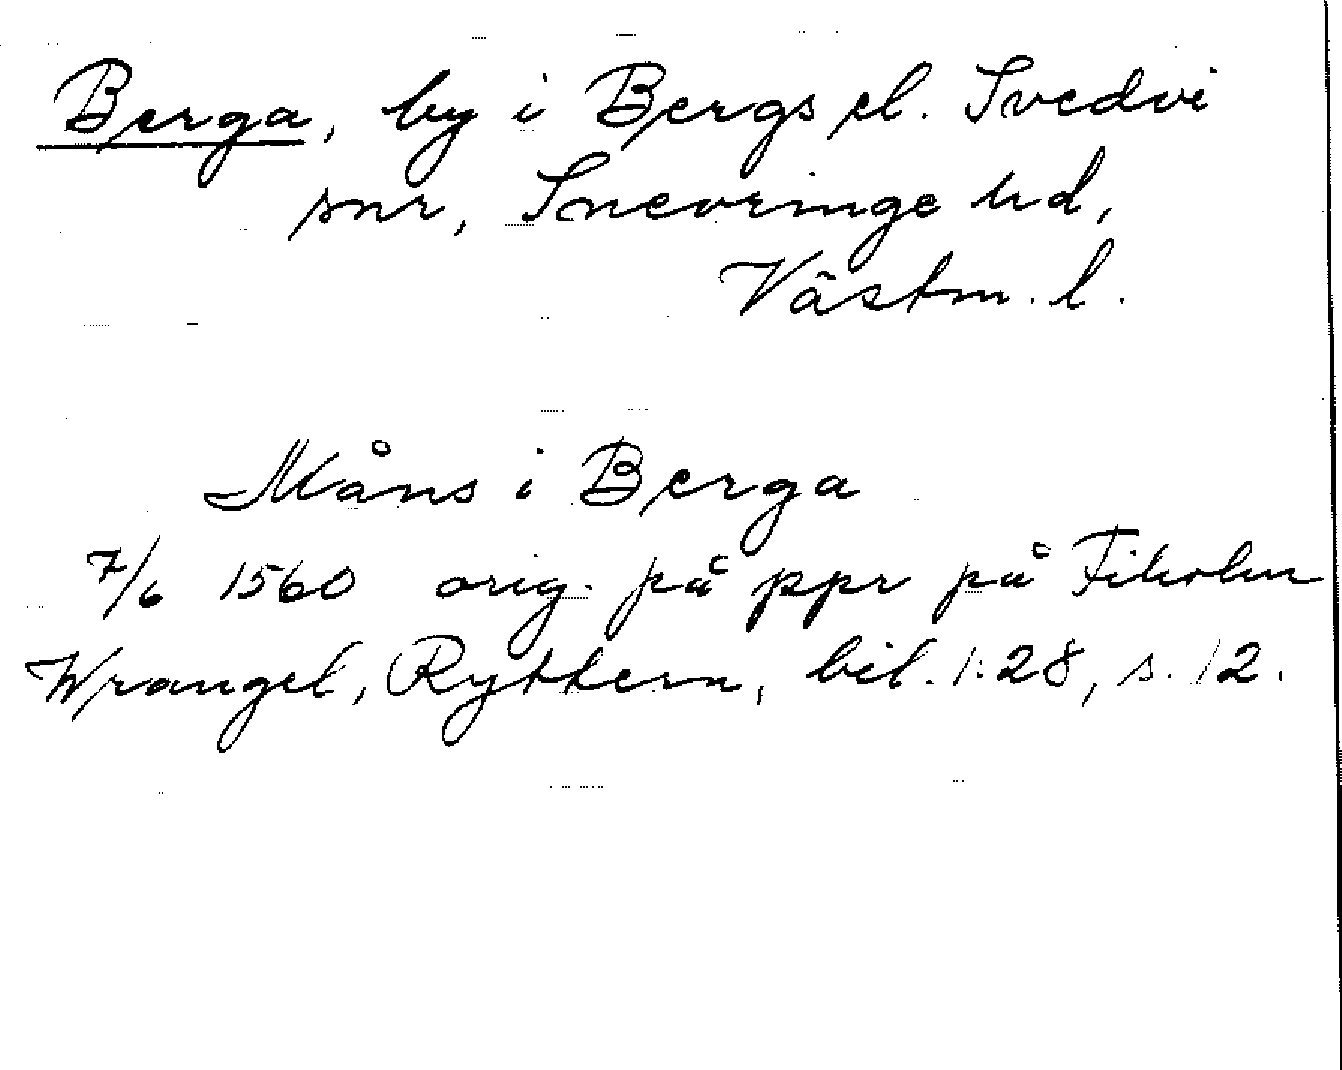 Berga, by i Bergs el. Svedvi
snr, Snevringe hd,
Västm. l.
Måns i Berga
7/6 1560 orig. på ppr på Fiholm
Wrangel, Ryttern, bil. 1:28, s. 12.